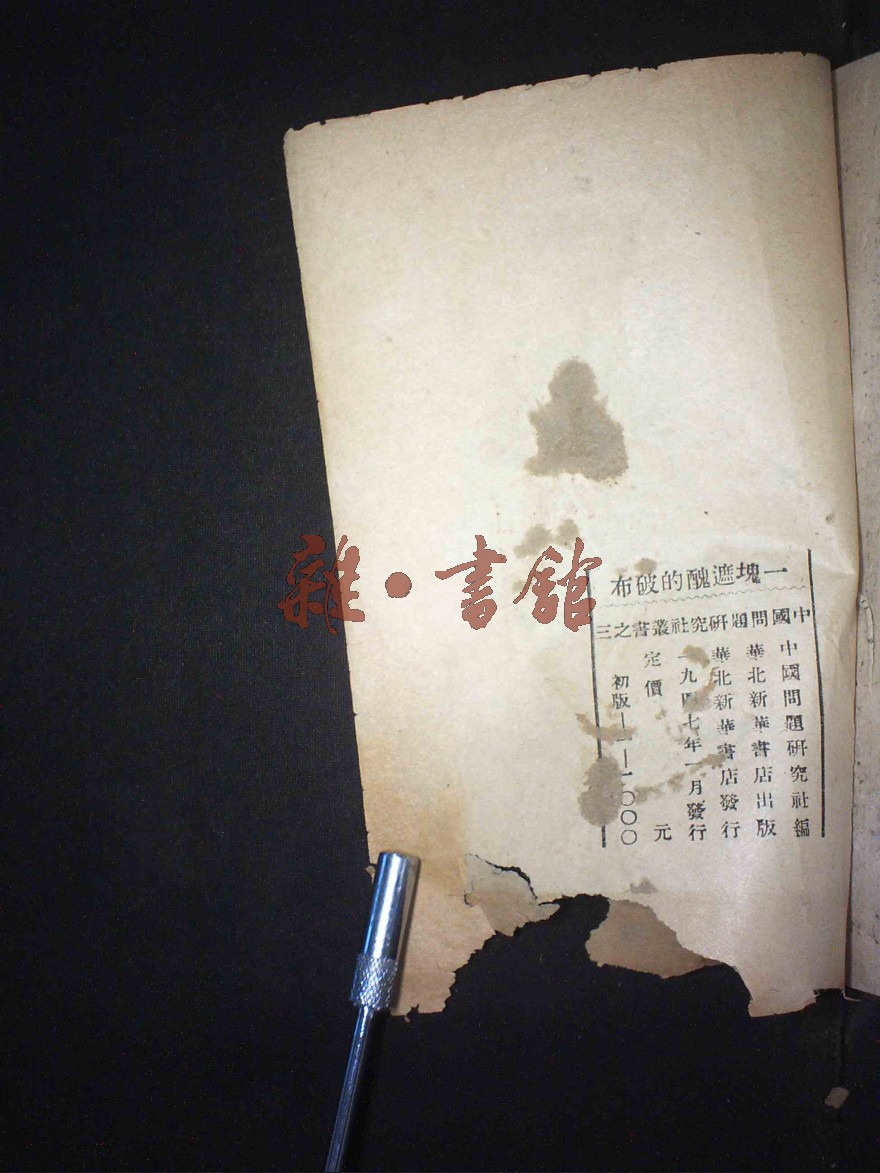 一塊遮醜的破布
中國問題研究社叢書之三
中國問題研究社編
華北新華書店出版
華北新華書店發行
一九四七年一月發行
定價 元
初版—1—1000
雜·書館